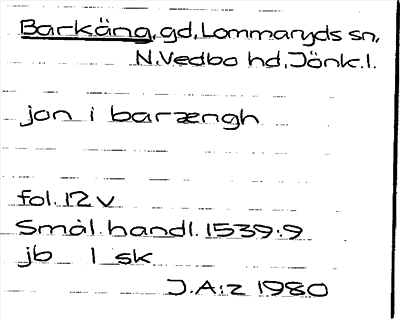 Barkäng, gd, Lommaryds sn,
N. Vedbo hd, Jönk. l.
jon i barængh
fol. 12 v
Smål. handl. 1539:9
jb 1 sk
J.A:z 1980